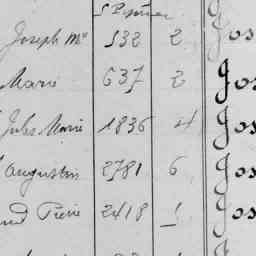 Joseph Mie 532 2 Jos
Marie 637 2 Jos
Jules Marie 1836 4 Jos
augustin 2781 6 Jos
Pierre 2418 1 Jos